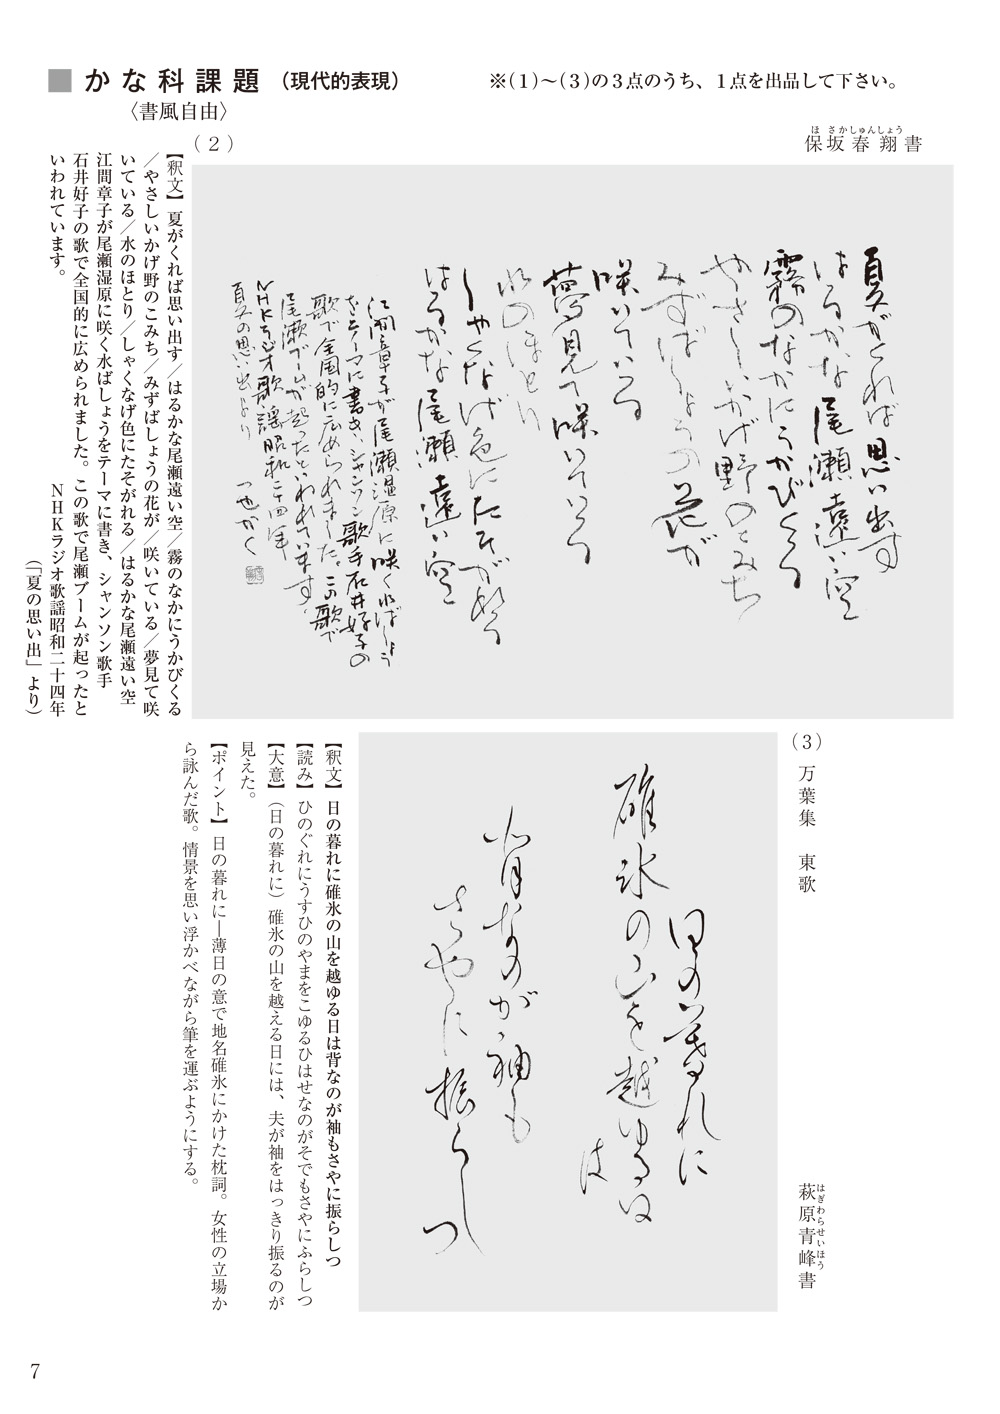 ■ かな科課題（現代的表現）
〈書風自由〉
※（1）〜（3）の3点のうち、1点を出品して下さい。
（2）
保坂春翔書
ほさかしゅんしょう
夏がくれば思い出す
はるかな尾瀬遠い空
霧のなかにうかびくる
やさしいかげ野のこみち
みずばしょうの花が
咲いている
夢見て咲いている
水のほとり
しゃくなげ色にたそがれる
はるかな尾瀬遠い空
江間章子が尾瀬湿原に咲く水ばしょう
をテーマに書き、シャンソン歌手石井好子の
歌で全国的に広められました。この歌で
尾瀬ブームが起ったといわれています。
NHKラジオ歌謡昭和二十四年
夏の思い出より
【釈文】夏がくれば思い出す／はるかな尾瀬遠い空／霧のなかにうかびくる
／やさしいかげ野のこみち／みずばしょうの花が／咲いている／夢見て咲
いている／水のほとり／しゃくなげ色にたそがれる／はるかな尾瀬遠い空
江間章子が尾瀬湿原に咲く水ばしょうをテーマに書き、シャンソン歌手
石井好子の歌で全国的に広められました。この歌で尾瀬ブームが起ったと
いわれています。
NHKラジオ歌謡昭和二十四年
（「夏の思い出」より）
（3）
万葉集　東歌
萩原青峰書
はぎわらせいほう
日の暮れに
碓氷の山を越ゆる日
は
背なのが袖も
さやに振らしつ
【釈文】日の暮れに碓氷の山を越ゆる日は背なのが袖もさやに振らしつ
【読み】ひのぐれにうすひのやまをこゆるひはせなのがそでもさやにふらしつ
【大意】（日の暮れに）碓氷の山を越える日には、夫が袖をはっきり振るのが
見えた。
【ポイント】日の暮れに―薄日の意で地名碓氷にかけた枕詞。女性の立場か
ら詠んだ歌。情景を思い浮かべながら筆を運ぶようにする。
7